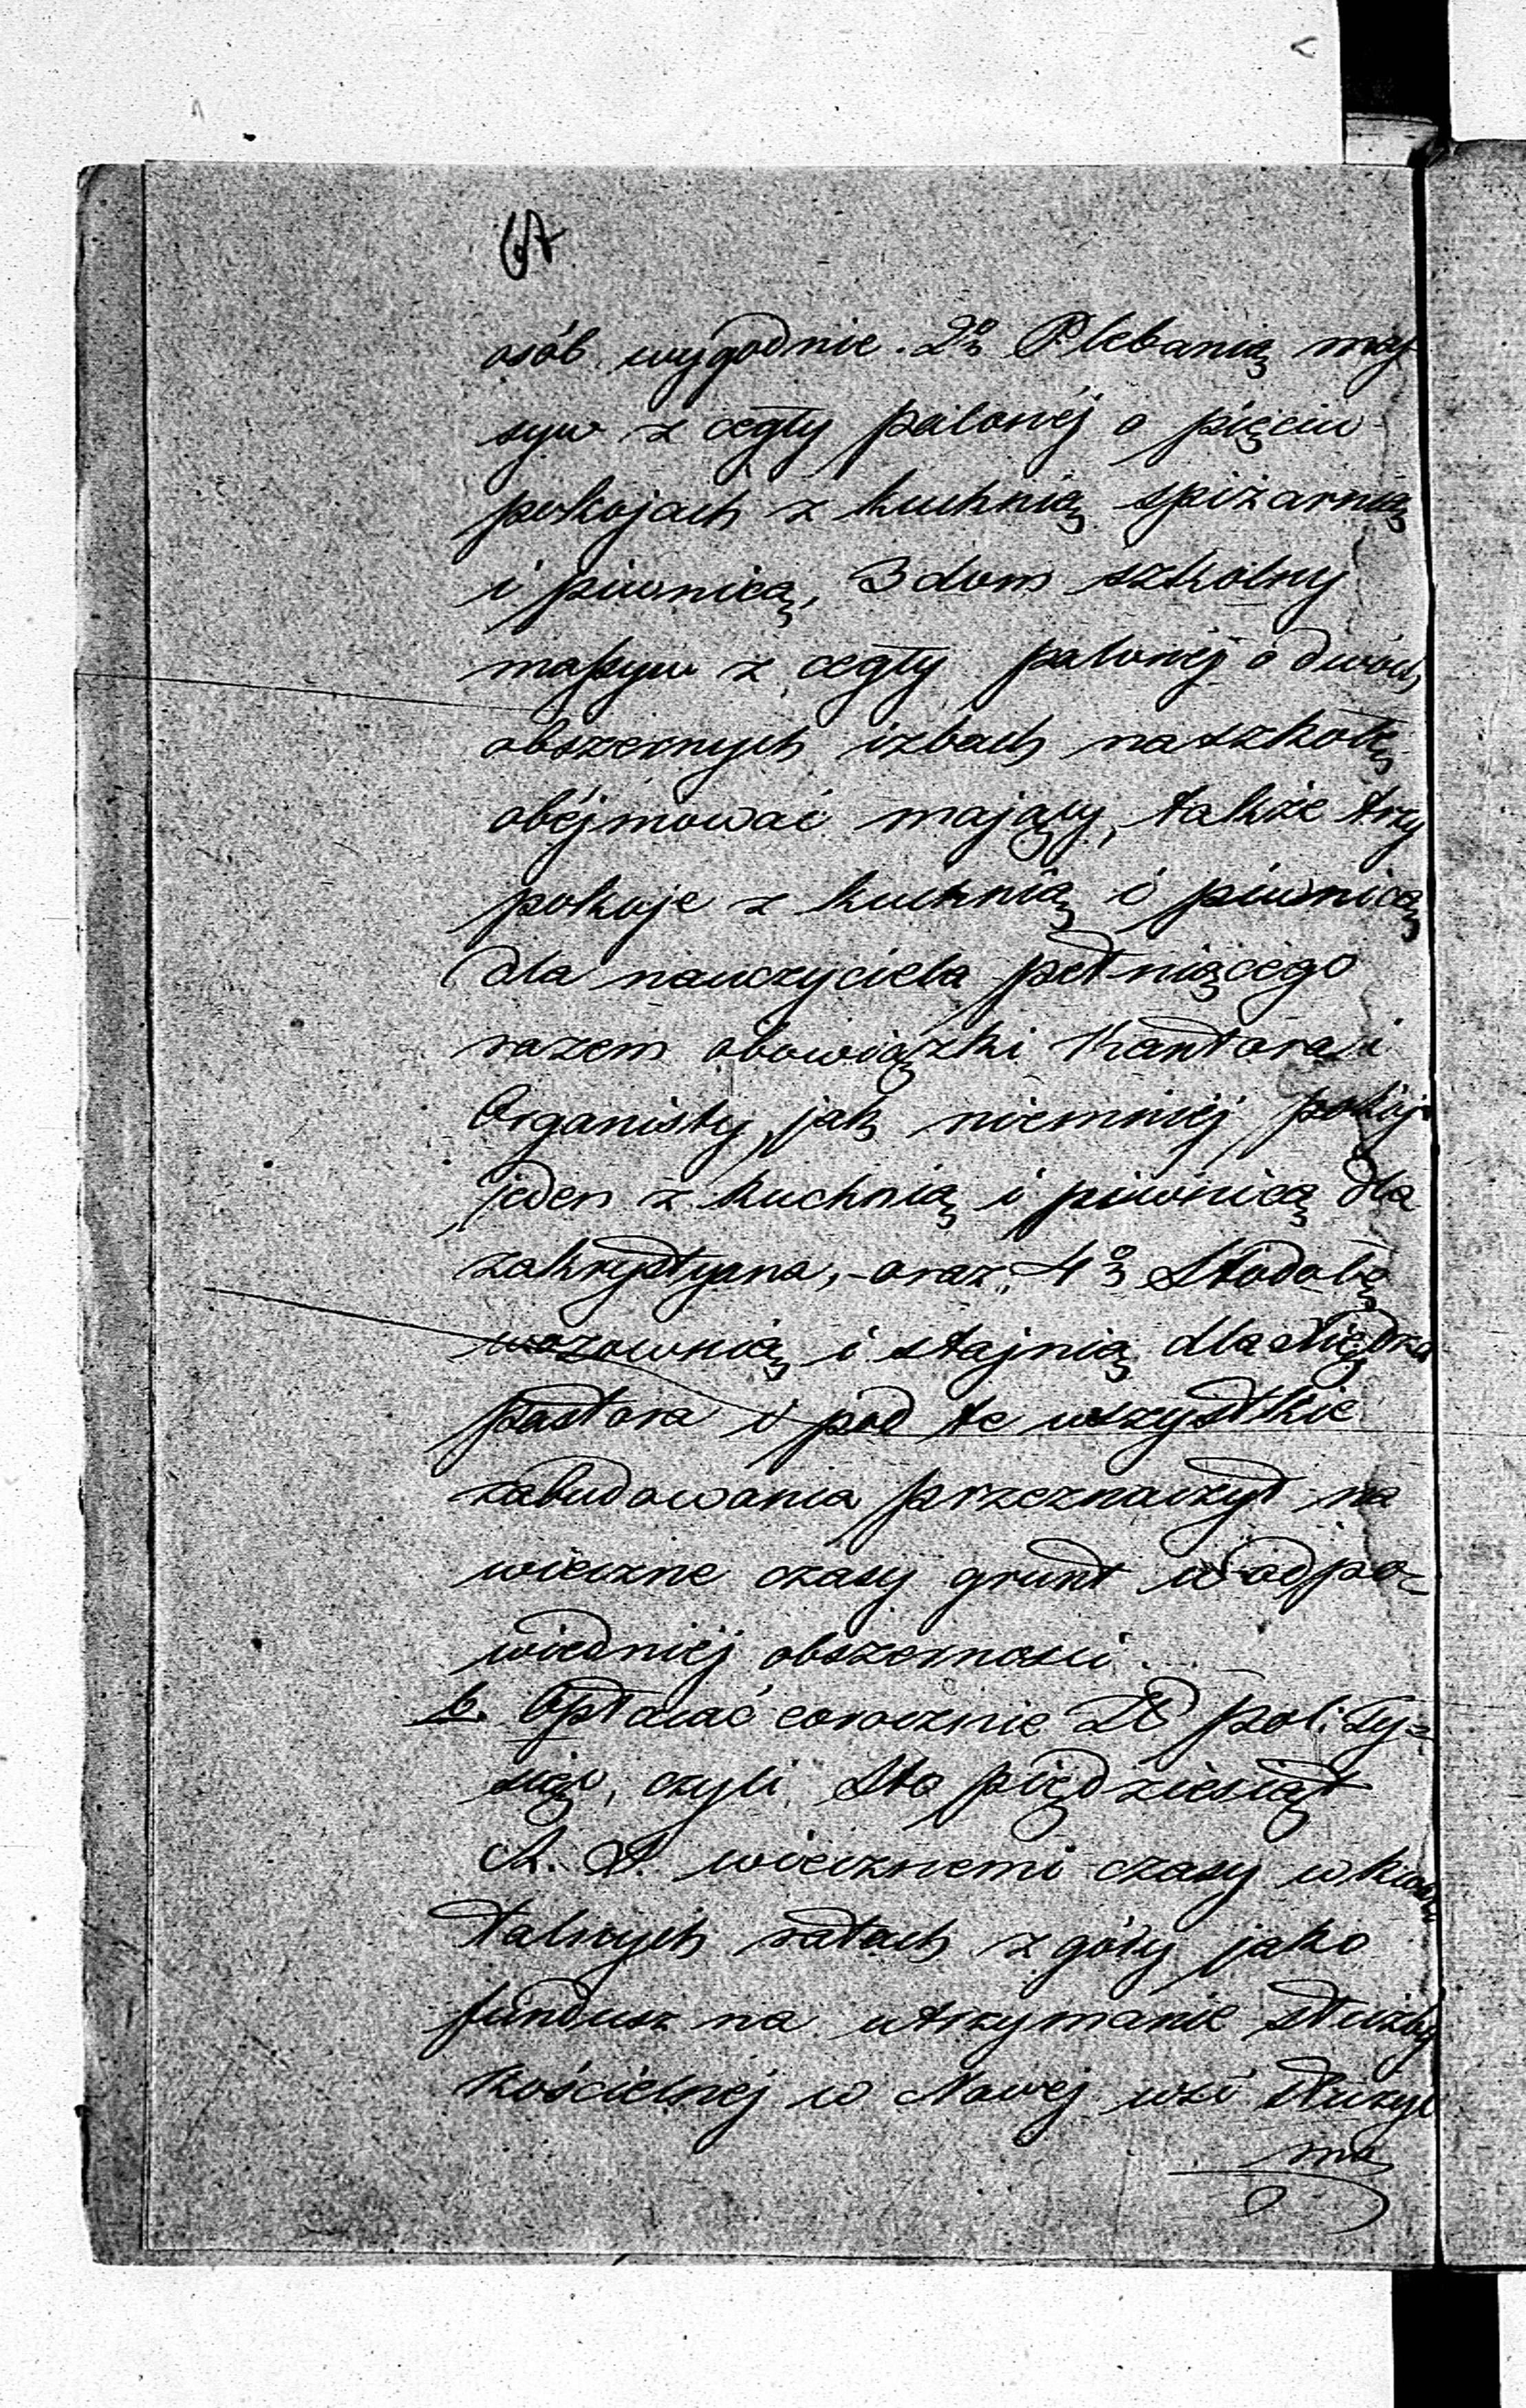 osób wygodnie. 2o Plebanią mas
syw z cegły palonéj o pięciu
pokojach z kuchnią spiżarnią
i piwnicą, 3 dom szkolny
massyw z cegły palonéj o dwóch
obszernych izbach na szkołę
obéjmować mający, także trzy
pokoje z kuchnią i piwnicą
dla nauczyciela pełniącego
razem obowiązki Kantora i
Organisty, jak niemniéj pokój
jeden z kuchnią i piwnicą dla
zakrystyana, - oraz, 4o Stodołę
wozownią i stajnią dla Księdza
pastora i pod te wszystkie
zabudowania przeznaczył na
wieczne czasy grunt w odpo-
wiedniéj obszernosci.
b. Opłacać corocznie Zł pol: Ty-
siąc, czyli Sto piędziesiąt
R. S. wiecznemi czasy w kwar
talnych ratach z góry jako
fundusz na utrzymanie służby
Kościelnéj w Nowej wsi służyć
ma